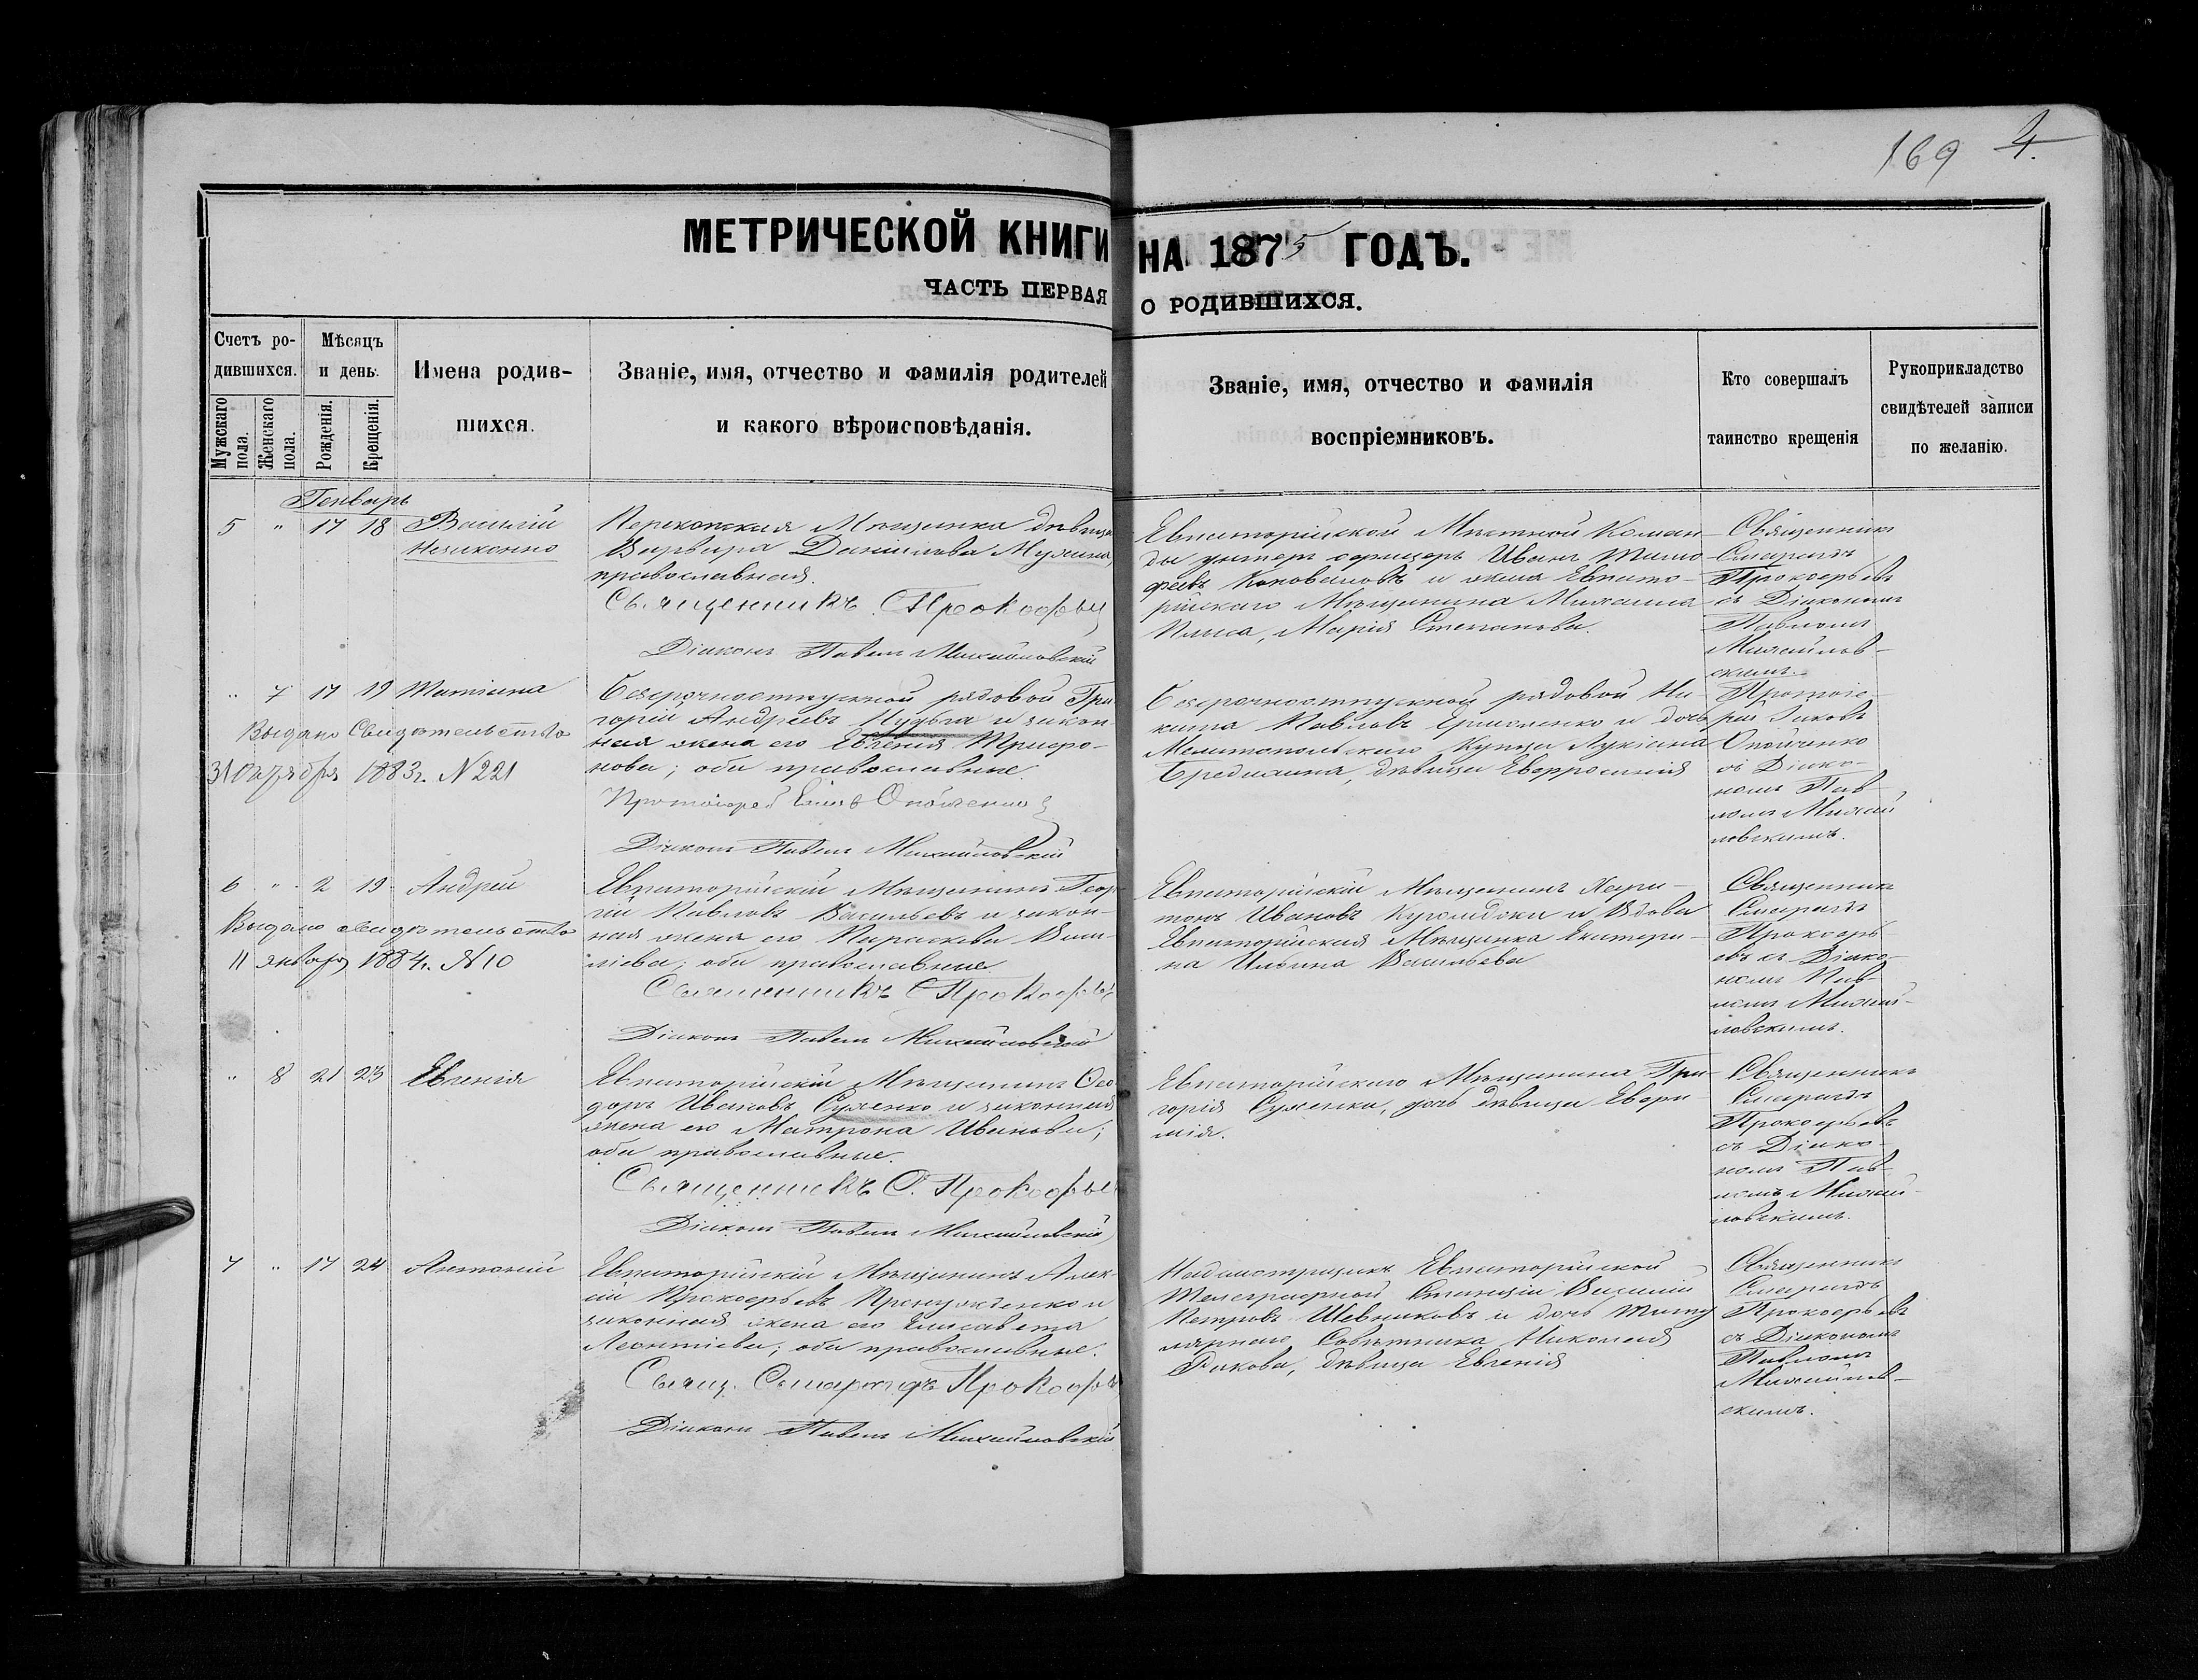 169 4.
МЕТРИЧЕСКОЙ КНИГИ НА 1875 ГОДЪ.
ЧАСТЬ ПЕРВАЯ О РОДИВШИХСЯ.
Счетъ ро-
дившихся.
Мужскаго пола.
Женскаго пола.
Мѣсяцъ
и день.
Рожденія.
Крещенія.
Имена родив-
шихся.
Званіе, имя, отчество и фамилія родителей
и какого вѣроисповѣданія.
Званіе, имя, отчество и фамилія
воспріемниковъ.
Кто совершалъ
таинство крещенія
Рукоприкладство
свидѣтелей записи
по желанію.
Генварь
5 " 17 18 Василій
незаконно
Перекопская Мѣщанка дѣвица
Варвара Данилова Мухина,
православная.
Священникъ С Прокофьев
Діаконъ Павелъ Михайловскій
Евпаторійской Мѣстной Коман-
ды унтеръ офицеръ Иванъ Тимо-
феевъ Коноваловъ и жена Евпато-
рійскаго Мѣщанина Михаила
Марія Степанова.
Священникъ
Смарагдъ
Прокофьевъ
съ Діакономъ
Павломъ
Михайлов-
скимъ.
" 7 17 19 Татіана
Выдано Свидѣтельство
31 Октября 1883 г. N 221
Безсрочноотпускной рядовой Гри-
горій Андреевъ Кудьга и закон-
ная жена его Евгенія Трифо-
нова; оба православные.
Протоіерей Опойченко
Діаконъ Павелъ Михайловскій
Безсрочноотпускной рядовой Ни-
кита Павловъ Ермоленко и дочь
Мелитопольскаго Купца Лукіана
Бредихина, дѣвица Евфросинія
Протоіе-
рей Іаковъ
Опойченко
съ Діако-
номъ Пав-
ломъ Михай-
ловскимъ.
6 " 2 19 Андрей
Выдано свидѣтельство
11 января 1884 г. N 10
Евпаторійскій Мѣщанинъ Геор-
гій Павловъ Васильевъ и закон-
ная жена его Параскева Васи-
ліева; оба православные.
Священникъ С Прокофьев
Діаконъ Павелъ Михайловскій
Евпаторійскій Мѣщанинъ Хари-
тонъ Ивановъ и Вдова
Евпаторійская Мѣщанка Екатери-
на Ильина Васильева
Священникъ
Смарагдъ
Прокофь-
евъ съ Діако-
номъ Пав-
ломъ Михай-
ловскимъ.
" 8 21 23 Евгенія
Евпаторійскій Мѣщанинъ Ѳео-
доръ Ивановъ Сушенко и законная
жена его Матрона Иванова;
оба православные.
Священникъ С. Прокофьев
Діаконъ Павелъ Михайловскій
Евпаторійскаго Мѣщанина Гри-
горія Сушенки, дочь дѣвица Евфи-
мія.
Священникъ
Смарагдъ
Прокофьевъ
съ Діако-
номъ Пав-
ломъ Михай-
ловскимъ.
7 " 17 24 Антоній
Евпаторійскій Мѣщанинъ Алек-
сій Прокофьевъ и
законная жена его Елисавета
Леонтіева; оба православные.
Свящ. Смарагдъ Прокофьев
Діаконъ Павелъ Михайловскій
Надсмотрщикъ Евпаторійской
Телеграфной Станціи Василій
Петровъ Шевняковъ и дочь Титу-
лярнаго Совѣтника Николая
Рыкова, дѣвица Евгенія
Священникъ
Смарагдъ
Прокофьевъ
съ Діакономъ
Павломъ
Михайлов-
скимъ.